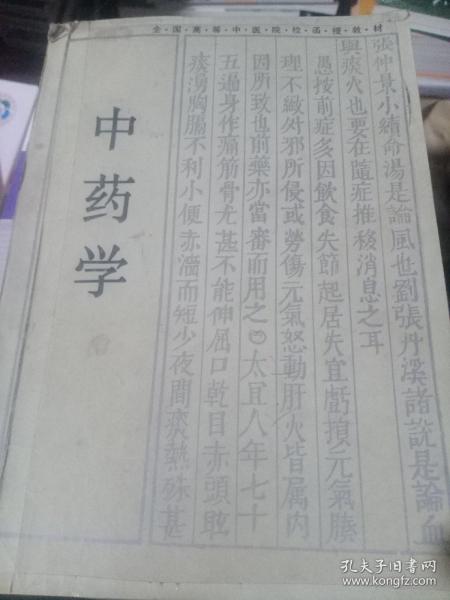 全·国·高·等·中·医·院·校·函·授·教·材
中药学
張仲景小續命湯是論風也劉張丹溪諸説是論血
與痰火也要在隨症推移消息之耳
愚按前症多因飲食失節起居失宜虧損元氣腠
理不緻外邪所侵或勞傷元氣怒動肝火皆属内
因所致也前藥亦當審而用之○太宜人年七十
五遍身作痛筋骨尤甚不能伸属口乾目赤頭眩
痰湧胸膈不利小便赤澀而短少夜間痰熱殊甚
孔夫子旧书网
www.kongfz.com